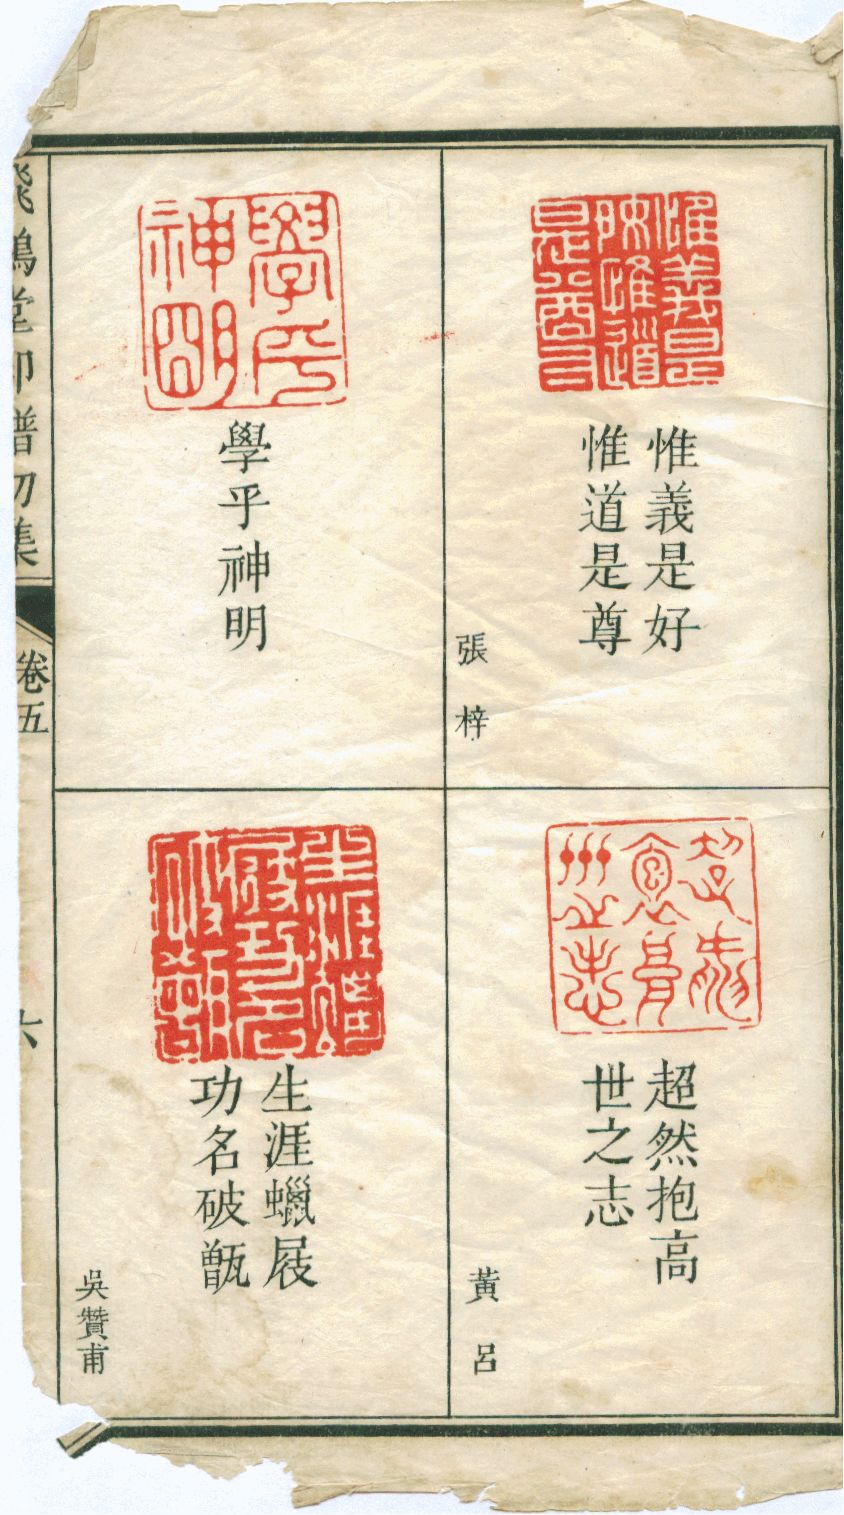 惟義是好
惟道是尊
張梓
學乎神明
超然抱高
世之志
黃呂
生涯蠟屐
功名破甑
吳贊甫
飛鴻堂印譜初集
卷五
六